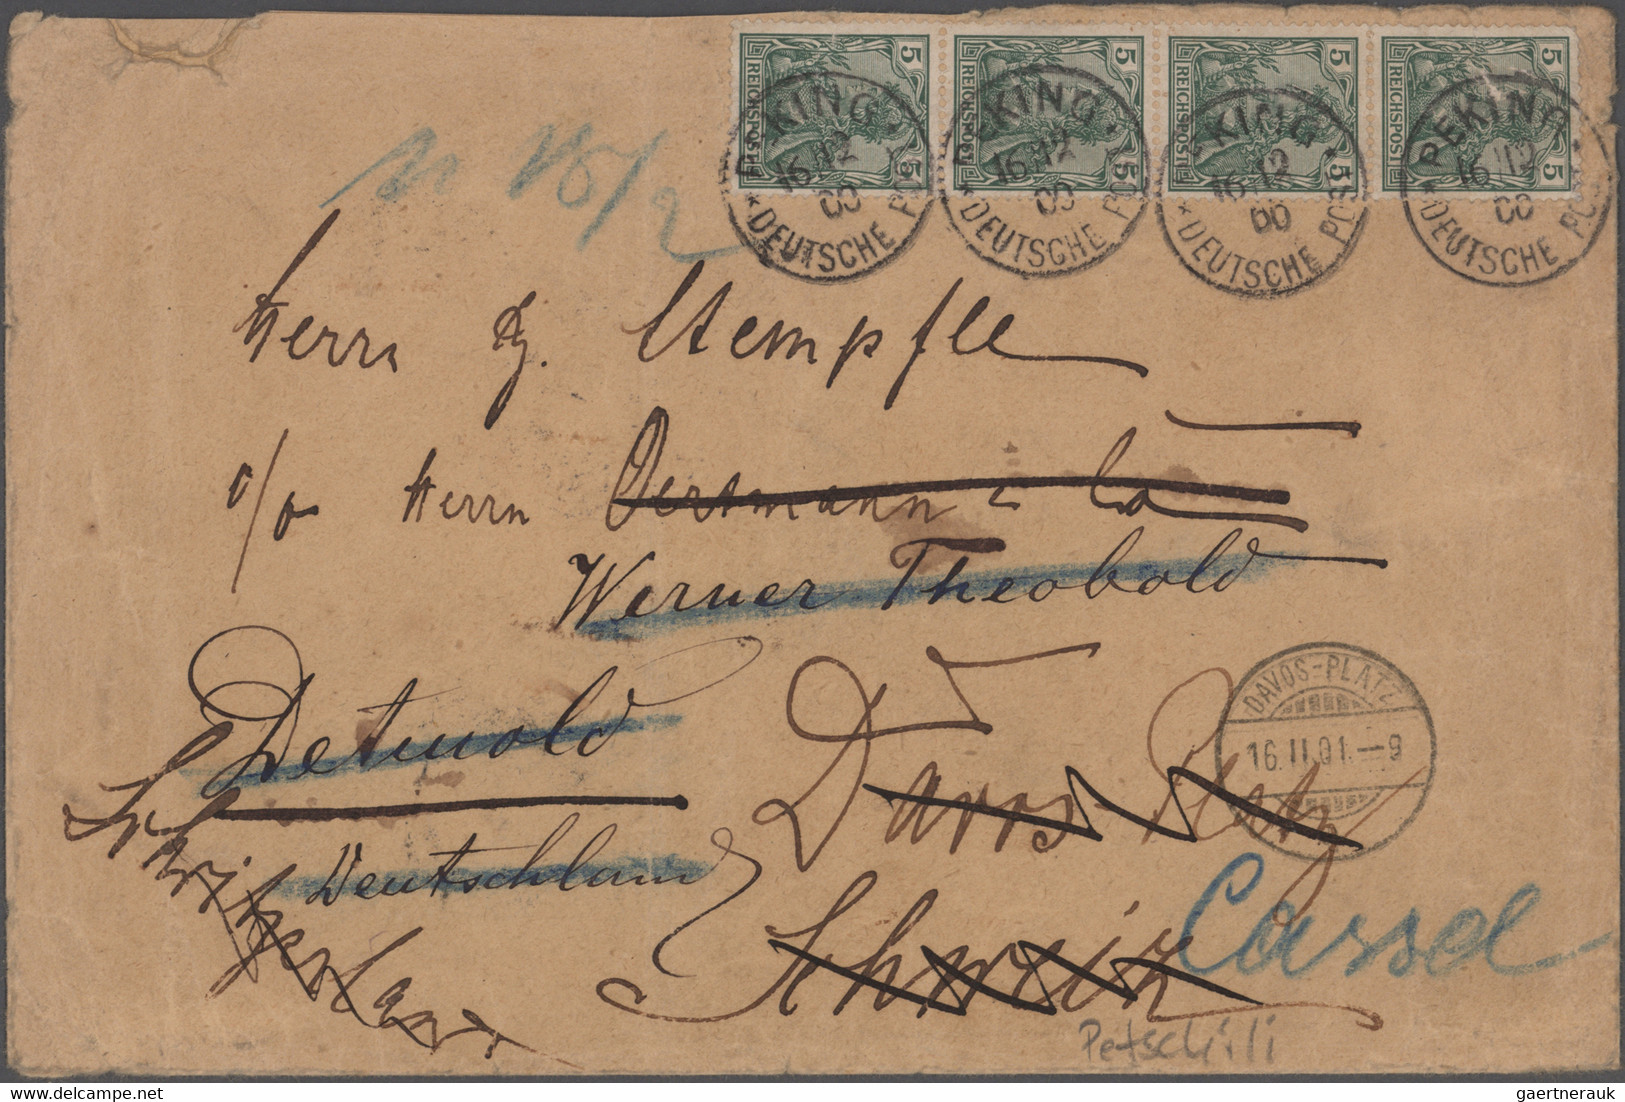 5 REICHSPOST 5
5 REICHSPOST 5
5 REICHSPOST 5
5 REICHSPOST 5
PEKING
16/12
00
* DEUTSCHE POST
PEKING
16/12
00
* DEUTSCHE POST
PEKING
16/12
00
* DEUTSCHE POST
PEKING
16/12
00
* DEUTSCHE POST
Herrn G. Stempfle
c/o Herrn Oertmann & Co
Werner Theobold
Detmold
Davos-Platz
DAVOS-PLATZ
16.II.01.-9
Deutschland
Schweiz
Cassel
Petschili
gaertnerauk